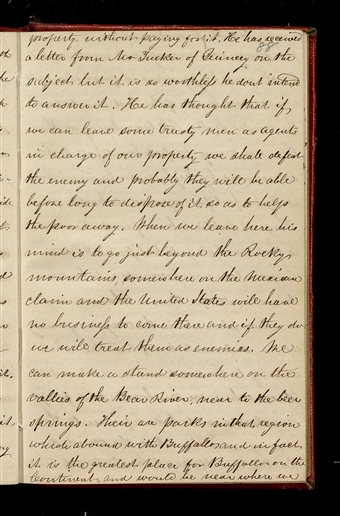 property, without paying for it. He has received
88
a letter from Mr Tucker of Quincey on the
subject but it is so worthless he dont intend
to answer it. He has thought that if
we can leave some trusty men as agents
in charge of our property we shall defeat
the enemy and probably they will be able
before long to dispose of it so as to help
the poor away. When we leave here his
mind is to go just beyond the Rocky
mountains, somewhere on the Mexican
claim and the United States will have
no business to come there and if they do
we will treat them as enemies. We
can make a stand somewhere on the
vallies of the Bear River, near to the beer
springs. Their are parks in that region
which abound with Buffalloes and in fact
it is the greatest place for Buffalloes on the
Continent, and would be near where we